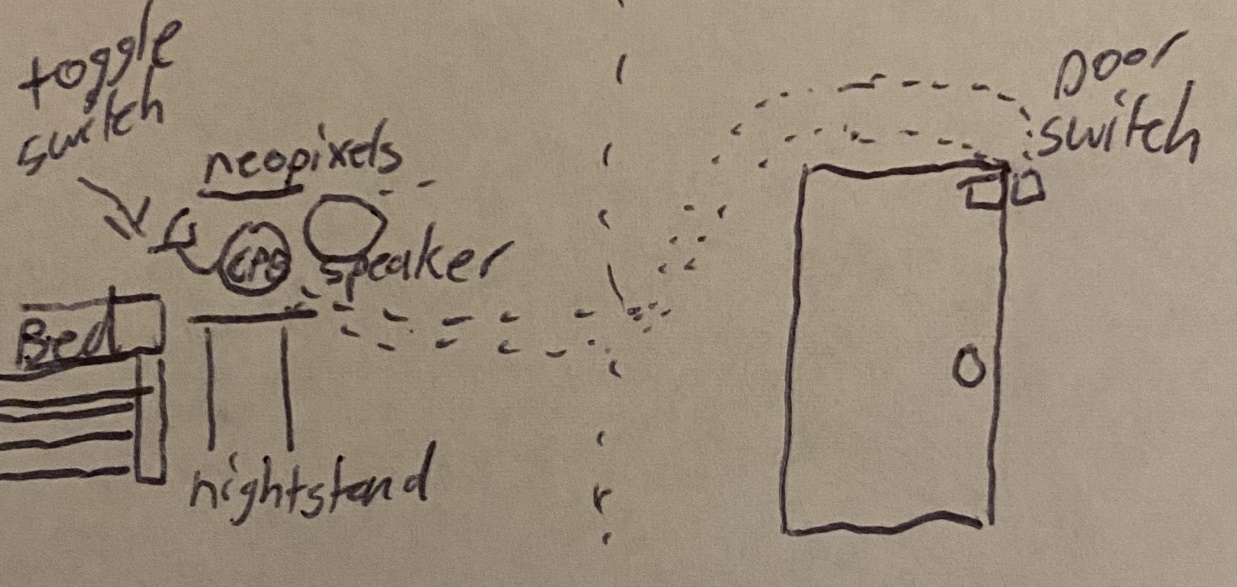 toggle
switch
neopixels
CPB
speaker
Bed
nightstand
Door
switch